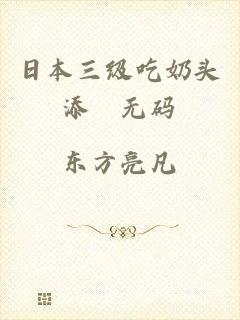 日本三级吃奶头
添　无码
东方亮凡